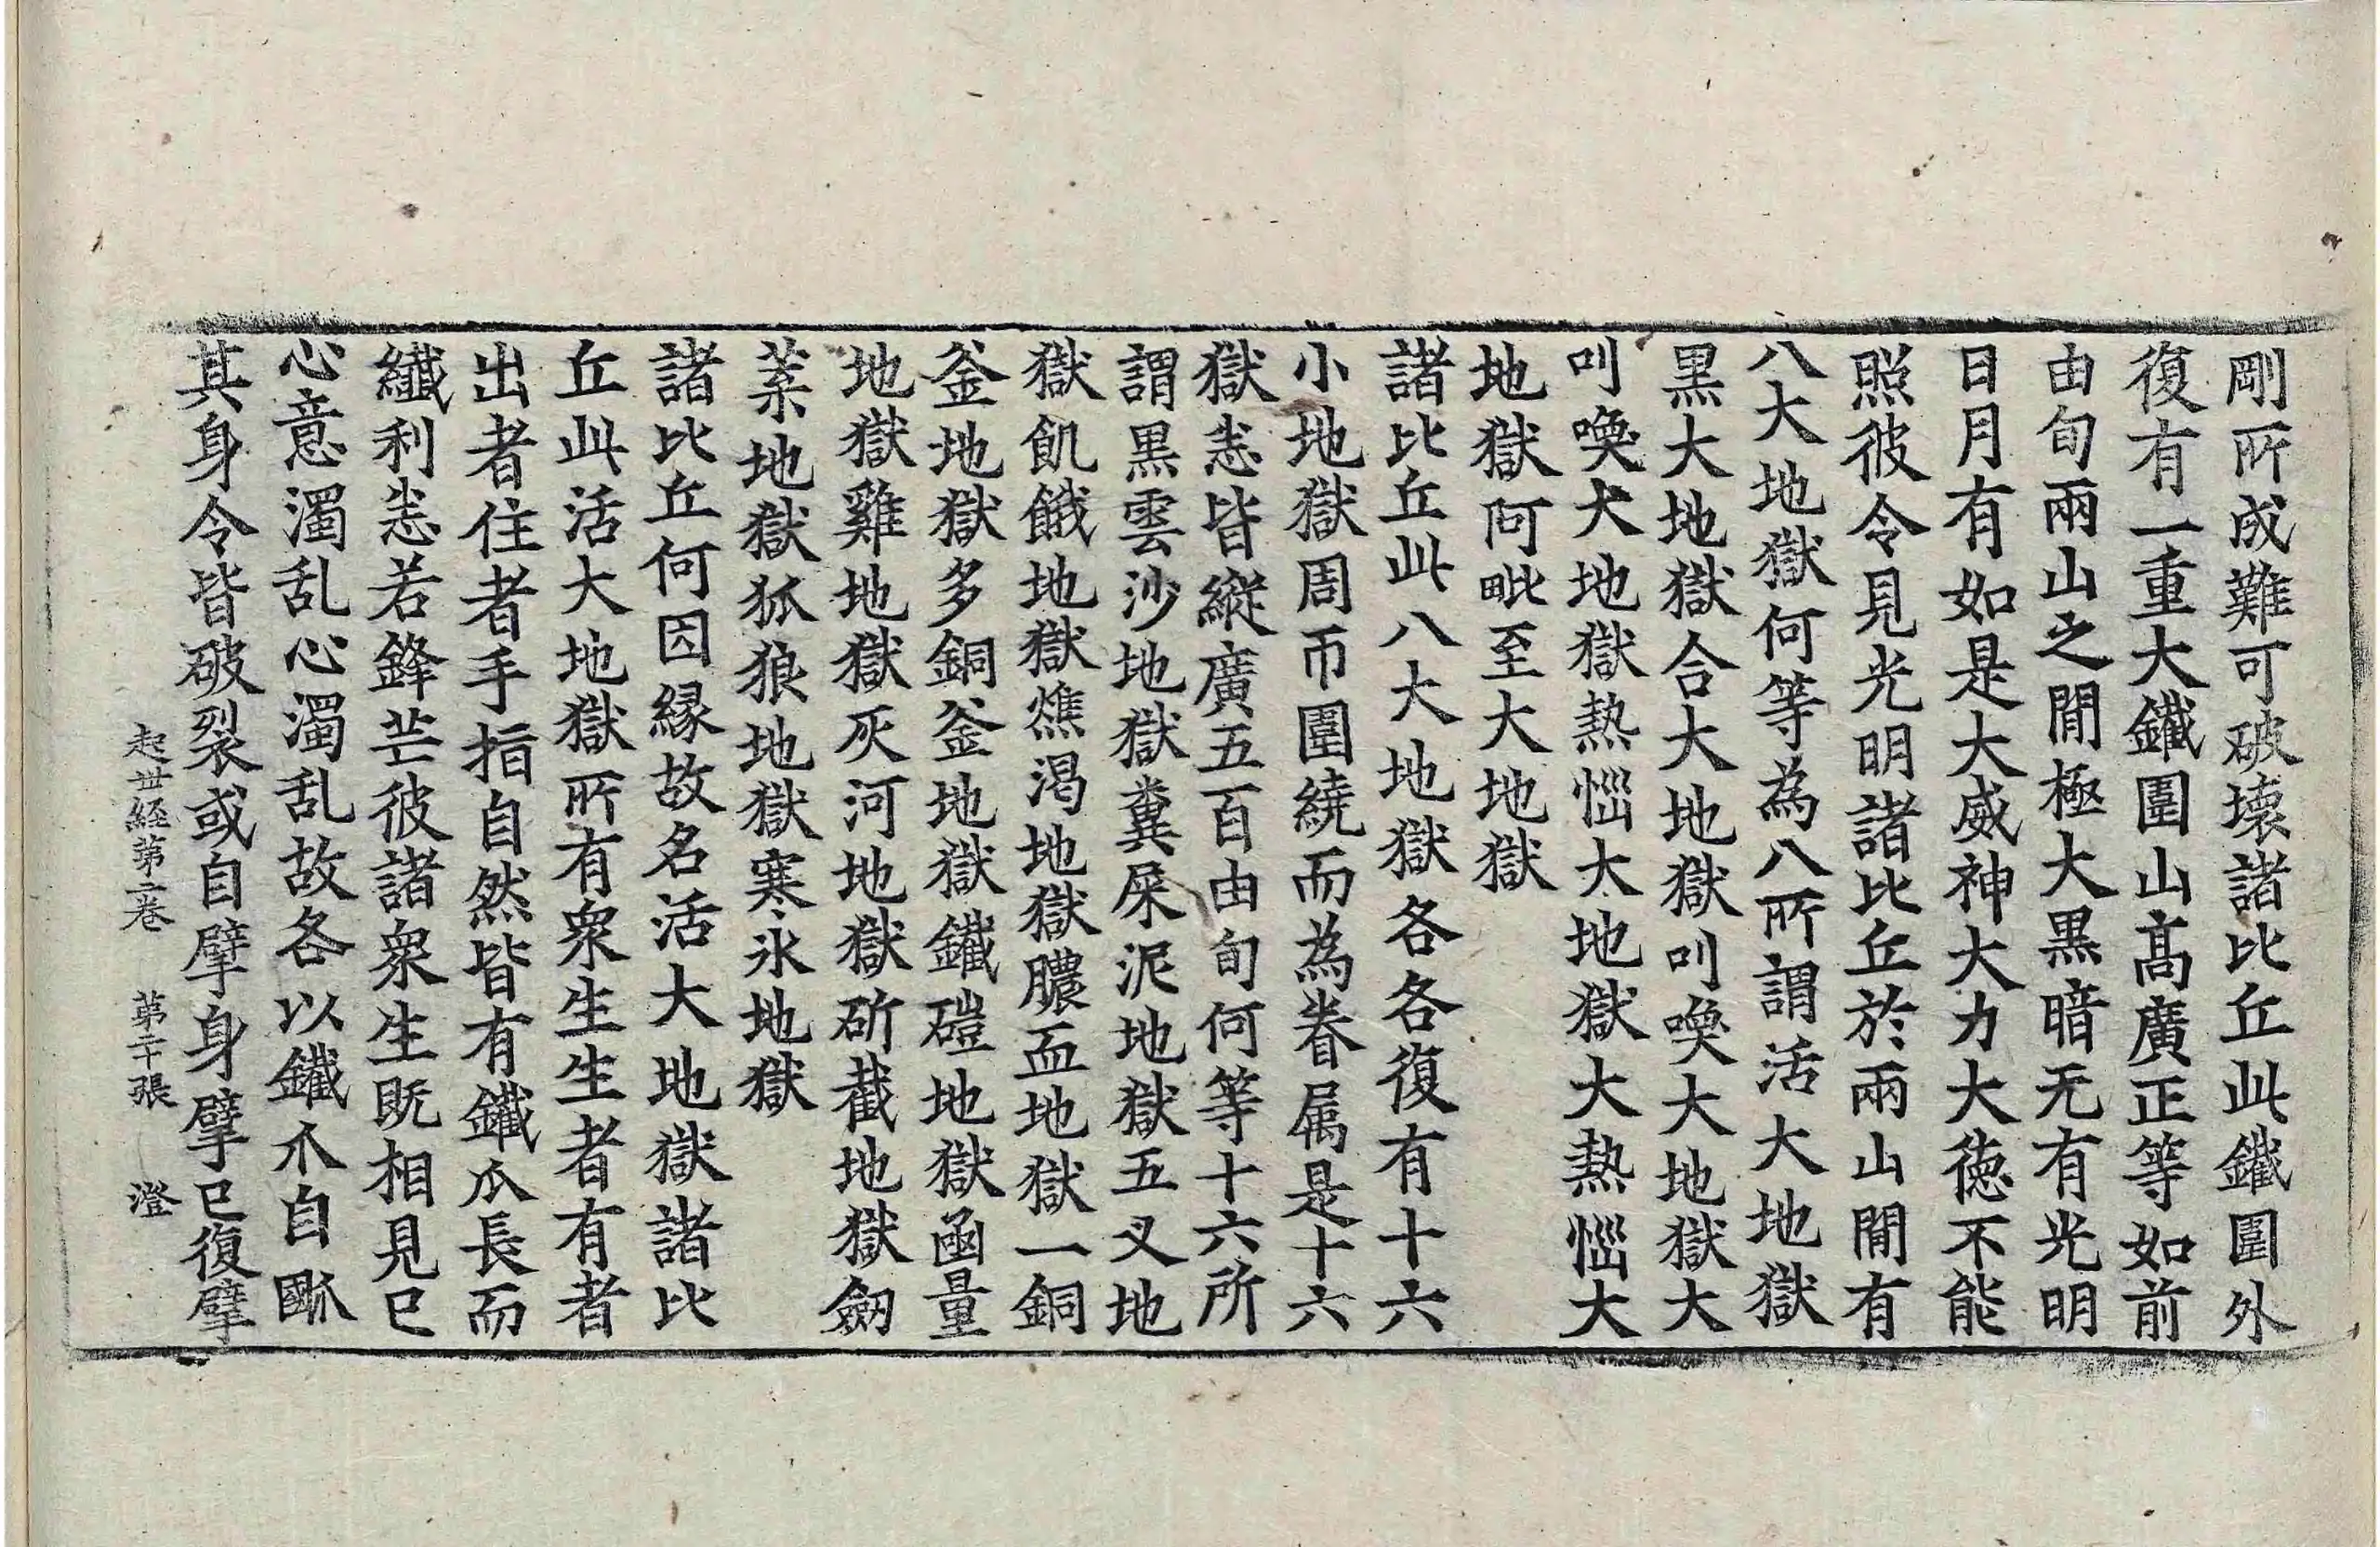 剛所成難可破壞諸比丘此鐵圍外
復有一重大鐵圍山髙廣正等如前
由旬兩山之閒極大黒暗无有光明
日月有如是大威神大力大德不能
照彼令見光明諸比丘於兩山閒有
八大地獄何等為八所謂活大地獄
黒大地獄合大地獄叫喚大地獄大
叫喚大地獄熱惱大地獄大熱惱大
地獄阿毗至大地獄
諸比丘此八大地獄各各復有十六
小地獄周帀圍繞而為眷属是十六
獄悉皆縱廣五百由旬何等十六所
謂黒雲沙地獄糞屎泥地獄五叉地
獄飢餓地獄燋渴地獄膿血地獄一銅
釜地獄多銅釜地獄鐵磑地獄函量
地獄雞地獄灰河地獄斫截地獄劔
葉地獄狐狼地獄寒氷地獄
諸比丘何因縁故名活大地獄諸比
丘此活大地獄所有衆生生者有者
出者住者手指自然皆有鐵爪長而
纖利悉若鋒芒彼諸衆生既相見已
心意濁乱心濁乱故各以鐵爪自㕟
其身令皆破裂或自擘身擘已復擘
起世経第二卷 第二十張 澄